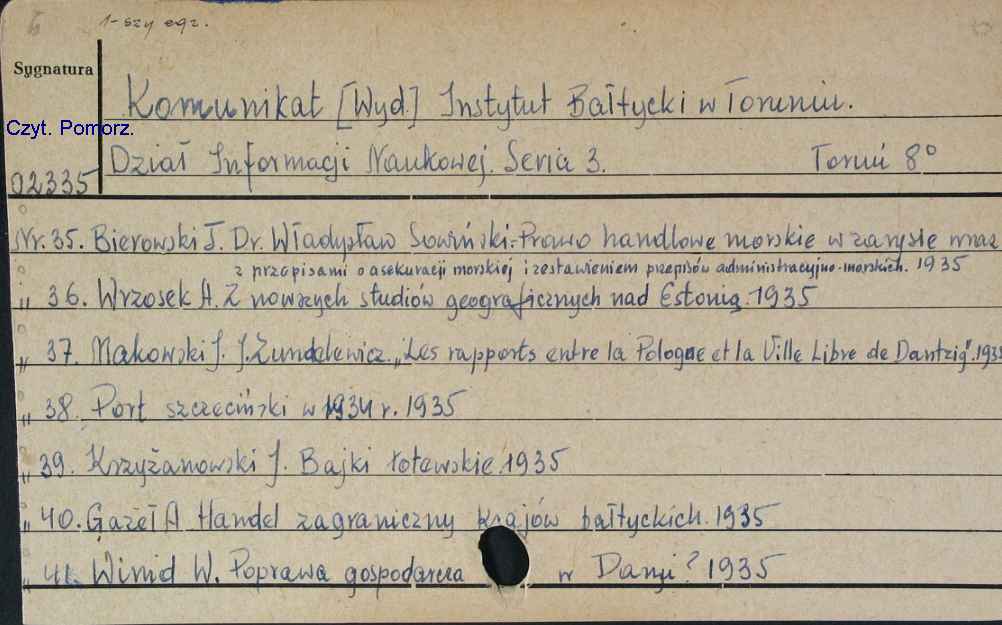 1-szy egz.
Sygnatura
Komunikat [Wyd.] Instytut Bałtycki w Toruniu.
Czyt. Pomorz.
Dział Informacji Naukowej. Seria 3. Toruń 8°
02335
Nr. 35. Bierowski T. Dr. Władysław Sowiński: Prawo handlowe morskie w zarysie wraz
z przepisami o asekuracji morskiej i zestawieniem przepisów administracyjno-morskich. 1935
" 36. Wrzosek A. Z nowszych studiów geograficznych nad Estonią. 1935
" 37. Makowski J. J. Żundelewicz. „Les rapports entre la Pologne et la Ville Libre de Dantzig". 1935
" 38. Port szczeciński w 1934 r. 1935
" 39. Krzyżanowski J. Bajki łotewskie. 1935
" 40. Gazeł A Handel zagraniczny krajów bałtyckich. 1935
" 41. Winid W. Poprawa gospodarcza w Danji? 1935